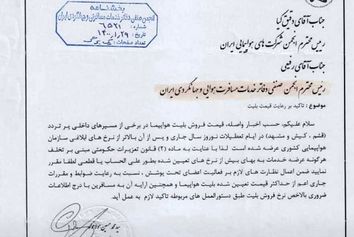 بخشنامه
انجمن صنفی دفاتر خدمات مسافرتی و جهانگردی ایران
شماره ۶۵۲۱
تاریخ ۱۴۰۰/۱/۲۹
تعداد صفحات
جناب آقای دقیق کیا
رییس محترم انجمن شرکت های هواپیمایی ایران
جناب آقای رفیعی
رییس محترم انجمن صنفی دفاتر خدمات مسافرت هوایی و جهانگردی ایران
موضوع : تاکید بر رعایت قیمت بلیت
سلام علیکم، حسب اخبار واصله، قیمت فروش بلیت هواپیما در برخی از مسیرهای داخلی پر تردد
(قشم - کیش و مشهد) در ایام تعطیلات نوروز سال جاری و پس از آن بالاتر از نرخ های ابلاغی سازمان
هواپیمایی کشوری عرضه شده است لذا با عنایت به ماده (۲) قانون تعزیرات حکومتی مبنی بر تخلف
هرگونه عرضه خدمات به بهای بیش از نرخ های تعیین شده بطور علی الحساب یا قطعی لطفا مقرر
فرمایید ضمن اعمال نظارت های لازم بر فعالیت اعضای تحت پوشش ، نسبت به رعایت ضوابط و مقررات
جاری اعم از حداکثر قیمت تعیین شده بلیت هواپیما وهمچنین ارایه آن به مسافرین با درج اطلاعات
ضروری بالاخص نرخ فروش بلیت طبق دستورالعمل های مربوطه تاکید لازم به عمل آید.